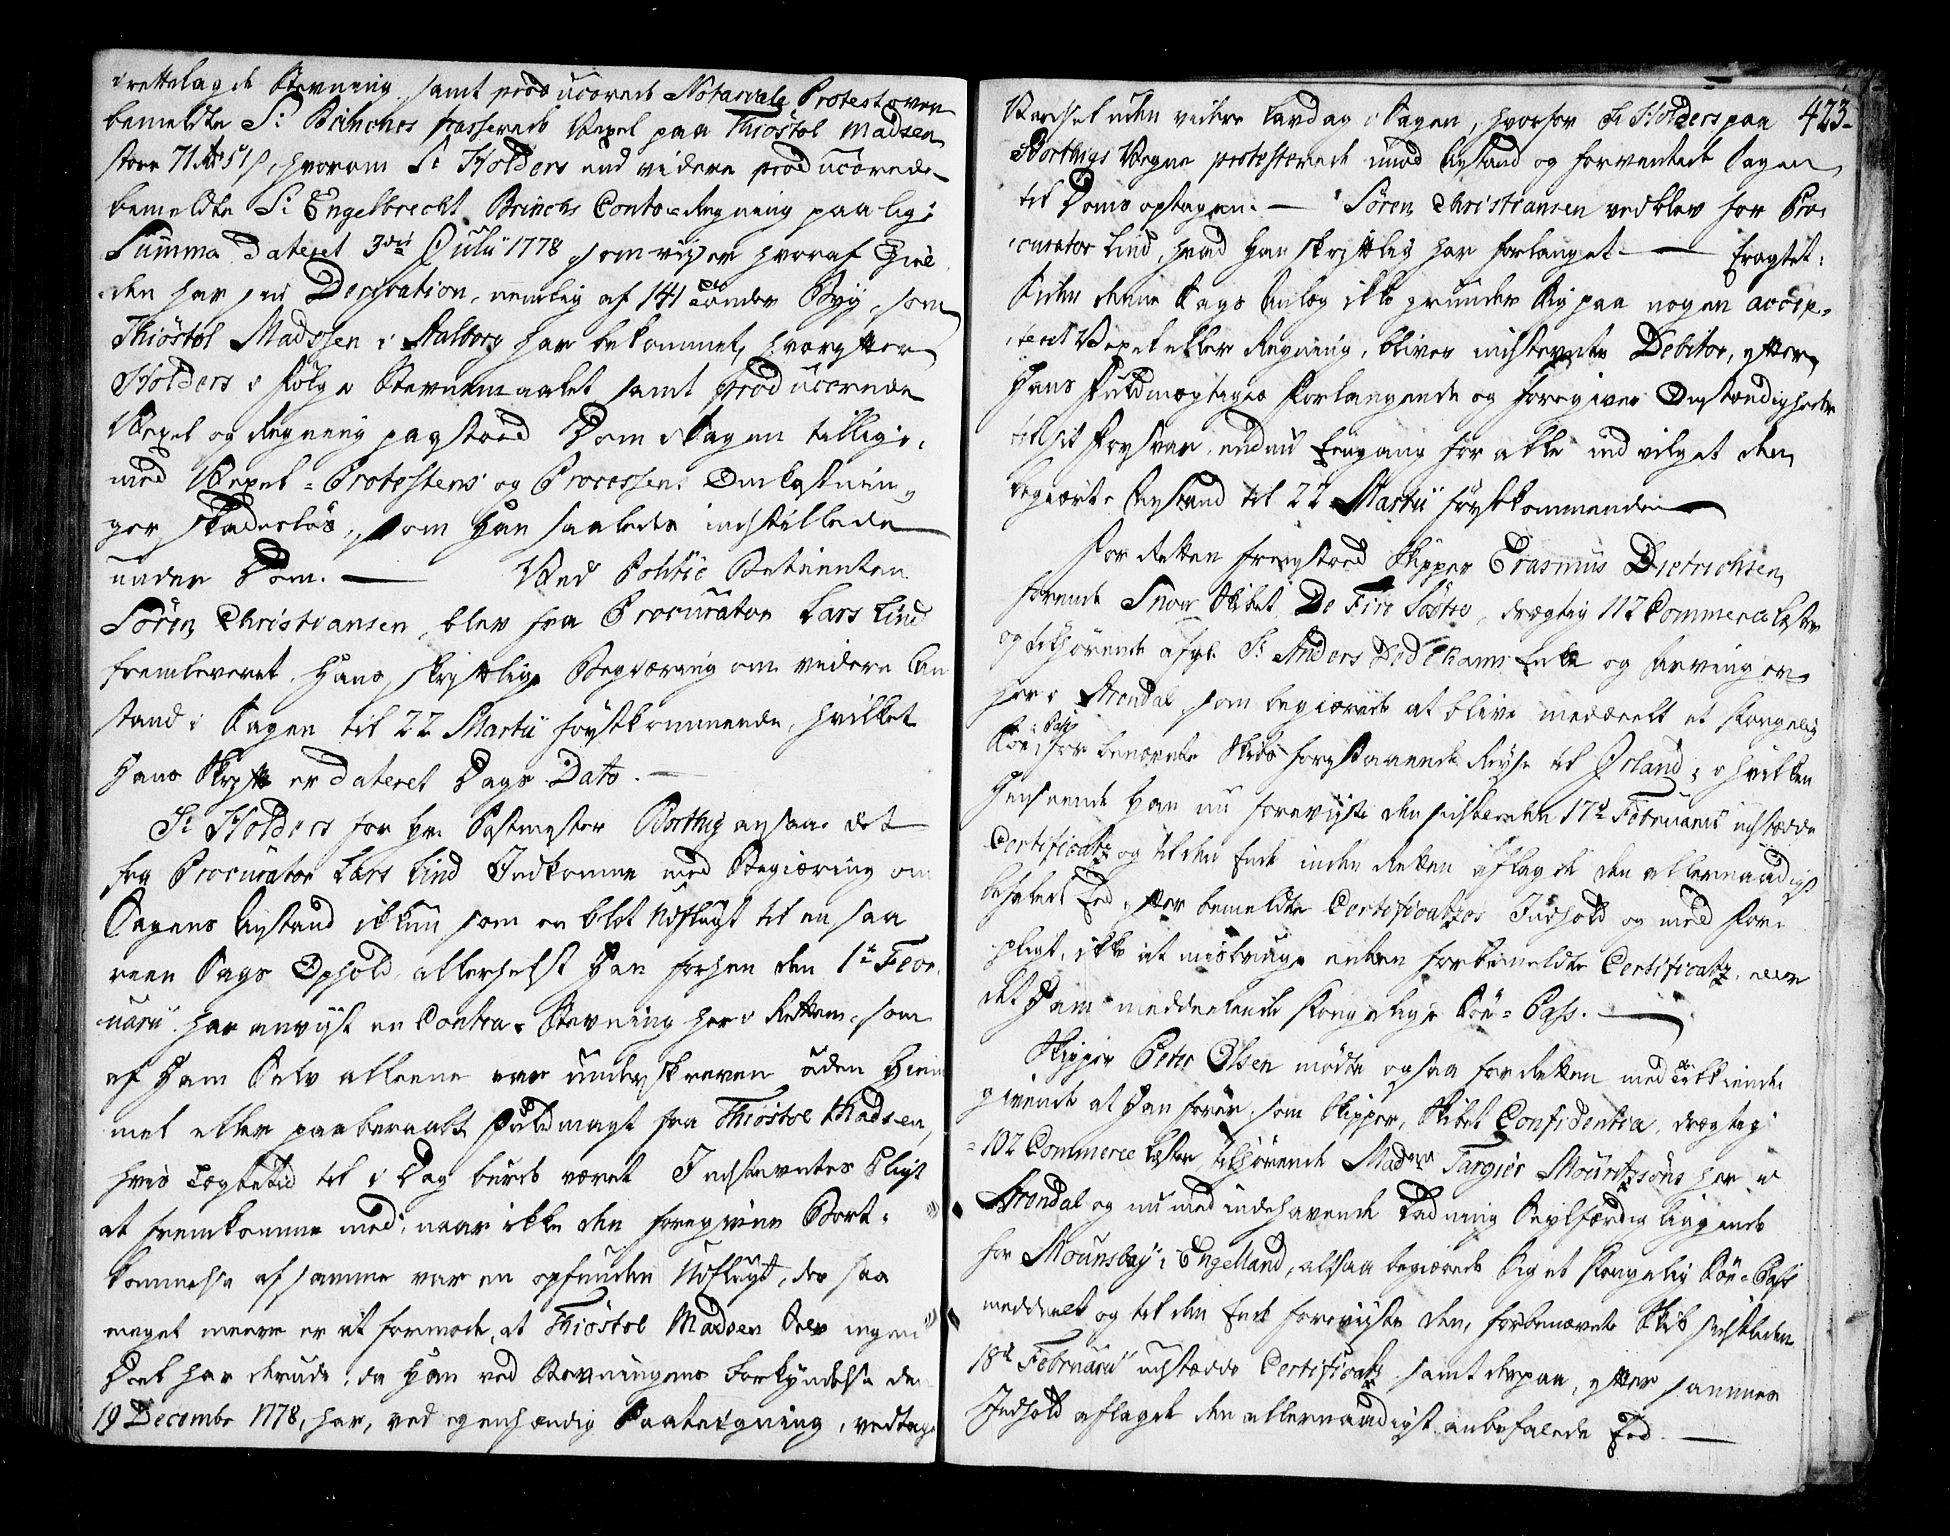 irettelagde Stevning samt producerede Notariale Protest over
bemeldte Sr Brinches trasserede Vexel paa Thiöstol Madsen
stoer 71 rdr 51 s, hvorom Sr Holders end videre producerede
bemeldte Sr Engelbrecht Brinchs Conto-Regning paa lige
Summa Dateret 3die Julii 1778, som viiser hvoraf Giel
den har sin Derivation, nemlig af 141 Tønder Byg, som
Thiöstol Madssen i Aalborg har bekommet, hvorefter
Holders i følge Stevnemaalet samt producerede
Vexel og Regning paastoed Dom i Sagen tillige
med Vexel-Protestens og Processens Omkostnin-
ger skadesløs, som han saaledes indstillede
under Dom. — Ved Politie Betienten
Sören Christiansen blev fra Procurator Lars Lind
fremleveret hans skriftlige Begiæring om videre An-
stand i Sagen til 22 Martii førstkommende, hvilket
hans Skrift er dateret Dags Dato. —
Sr Holders for Hr. Postmester Borthig ansaae det
fra Procurator Lars Lind Indkomne med Begiæring om
Sagens Anstand ikkun som en blot Udflugt til en saa
reen Sags Ophold, allerhelst han forhen den 1te Febr-
uarii har anviist en Contra-Stevning her i Retten, som
af ham Selv alleene var underskreven uden Hiem-
mel eller paaberaabt Fuldmagt fra Thiöstol Madsen,
hvis Tægtetid til i Dag burde været Indstevntes Pligt
at fremkomme med, naar ikke den foregivne Bort-
kommelse af samme var en opfunden Udflugt, der saa
meget meere er at formode, at Thiöstol Madsen Selv ingen
Deel har derudi, da han ved Stevningens Forkyndelse den
19 Decembr 1778, har, ved egenhændig Paategning, vedtaget
Vexelen uden videre Lavdag i Sagen, hvorfor Sr Holders paa 423.
Borthigs Vegne protesterede imod Anstand og forventede Sagen
til Doms optagen. — Sören Christiansen vedblev for Pro-
curator Lind, hvad han skriftlig har forlanget — Eragtet:
Siden denne Sags Anlæg ikke grunder Sig paa nogen accep-
teret Vexel eller Regning, bliver indstevnte Debitor, efter
hans Fuldmægtiges Forlangende og foregivne Omstændigheder
til sit Forsvar, endnu Eengang for alle indvilget den
begiærte Anstand til 22 Martii førstkommende —
For Retten fremstoed Skipper Erasmus Dietrichsen,
førende Snow Skibet De Fire Söstre, drægtig 112 Commercelæster
og tilhørende afgl. Sr Anders Dedekams Enke og Arvinger
her i Arendal, som begiærede at blive meddeelt et Kongelig
Söe-Pass for benævnte Skibs forestaaende Reyse til Irland; i hvilken
Henseende han nu foreviiste den sidstleden 17d Februarii udstædde
Certificatz og til den Ende inden Retten aflagde den allernaadigst
befalede Eed efter bemeldte Certificatzes Indhold og med For-
pligt, ikke at misbruge enten forbemeldte Certificatz, eller
det ham meddeelende Kongelige Söe-Pass. —
Skipper Peter Olsen mødte ogsaa for Retten med tilkiende-
givende at han fører, som Skipper, Skibet Confidentia, drægtig
102 Commerce Læster, tilhørende Madme Targier Mouritzsöns her i
Arendal og nu med indehavende Ladning Seylfærdig liggende
for Mounsbay i Engelland, altsaa begiærede Sig et Kongelig Söe-Pass
meddeelt og til den Ende foreviiste den, forbenævnte Skib sidstleden
18d Februarii udstædde Certificatz samt derpaa, efter sammes
Indhold aflagde den allernaadigst anbefalede Eed —